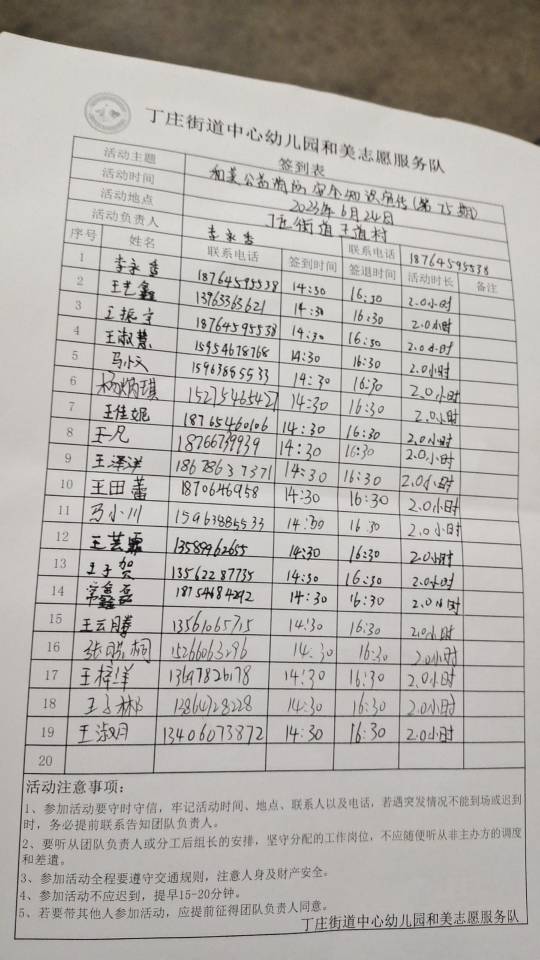 丁庄街道中心幼儿园和美志愿服务队
签到表
活动主题 和美公益消防安全知识宣传(第75期)
活动时间 2023年6月24日
活动地点 丁庄街道王道村
活动负责人 李永香 联系电话 18764595538
序号 姓名 联系电话 签到时间 签退时间 活动时长 备注
1 李永香 18764595538 14:30 16:30 2.0小时
2 王艺鑫 13963363621 14:30 16:30 2.0小时
3 王振宇 18764595538 14:30 16:30 2.0小时
4 王淑慧 15954678768 14:30 16:30 2.0小时
5 15963885533 14:30 16:30 2.0小时
6 杨炳琪 15275465427 14:30 16:30 2.0小时
7 王佳妮 18765460106 14:30 16:30 2.0小时
8 王凡 18766739939 14:30 16:30 2.0小时
9 王泽洋 18678637371 14:30 16:30 2.0小时
10 王田蕾 14:30 16:30 2.0小时
11 马小川 15963885533 14:30 16:30 2.0小时
12 王芸霏 13589962655 14:30 16:30 2.0小时
13 王子贺 13562287735 14:30 16:30 2.0小时
14 常鑫磊 14:30 16:30 2.0小时
15 王云腾 13561065715 14:30 16:30 2.0小时
16 15266063296 14:30 16:30 2.0小时
17 王梓洋 14:30 16:30 2.0小时
18 14:30 16:30 2.0小时
19 王淑月 13406073872 14:30 16:30 2.0小时
20
活动注意事项:
1、参加活动要守时守信，牢记活动时间、地点、联系人以及电话，若遇突发情况不能到场或迟到
时，务必提前联系告知团队负责人。
2、要听从团队负责人或分工后组长的安排，坚守分配的工作岗位，不应随便听从非主办方的调度
和差遣。
3、参加活动全程要遵守交通规则，注意人身及财产安全。
4、参加活动不应迟到，提早15-20分钟。
5、若要带其他人参加活动，应提前征得团队负责人同意。
丁庄街道中心幼儿园和美志愿服务队